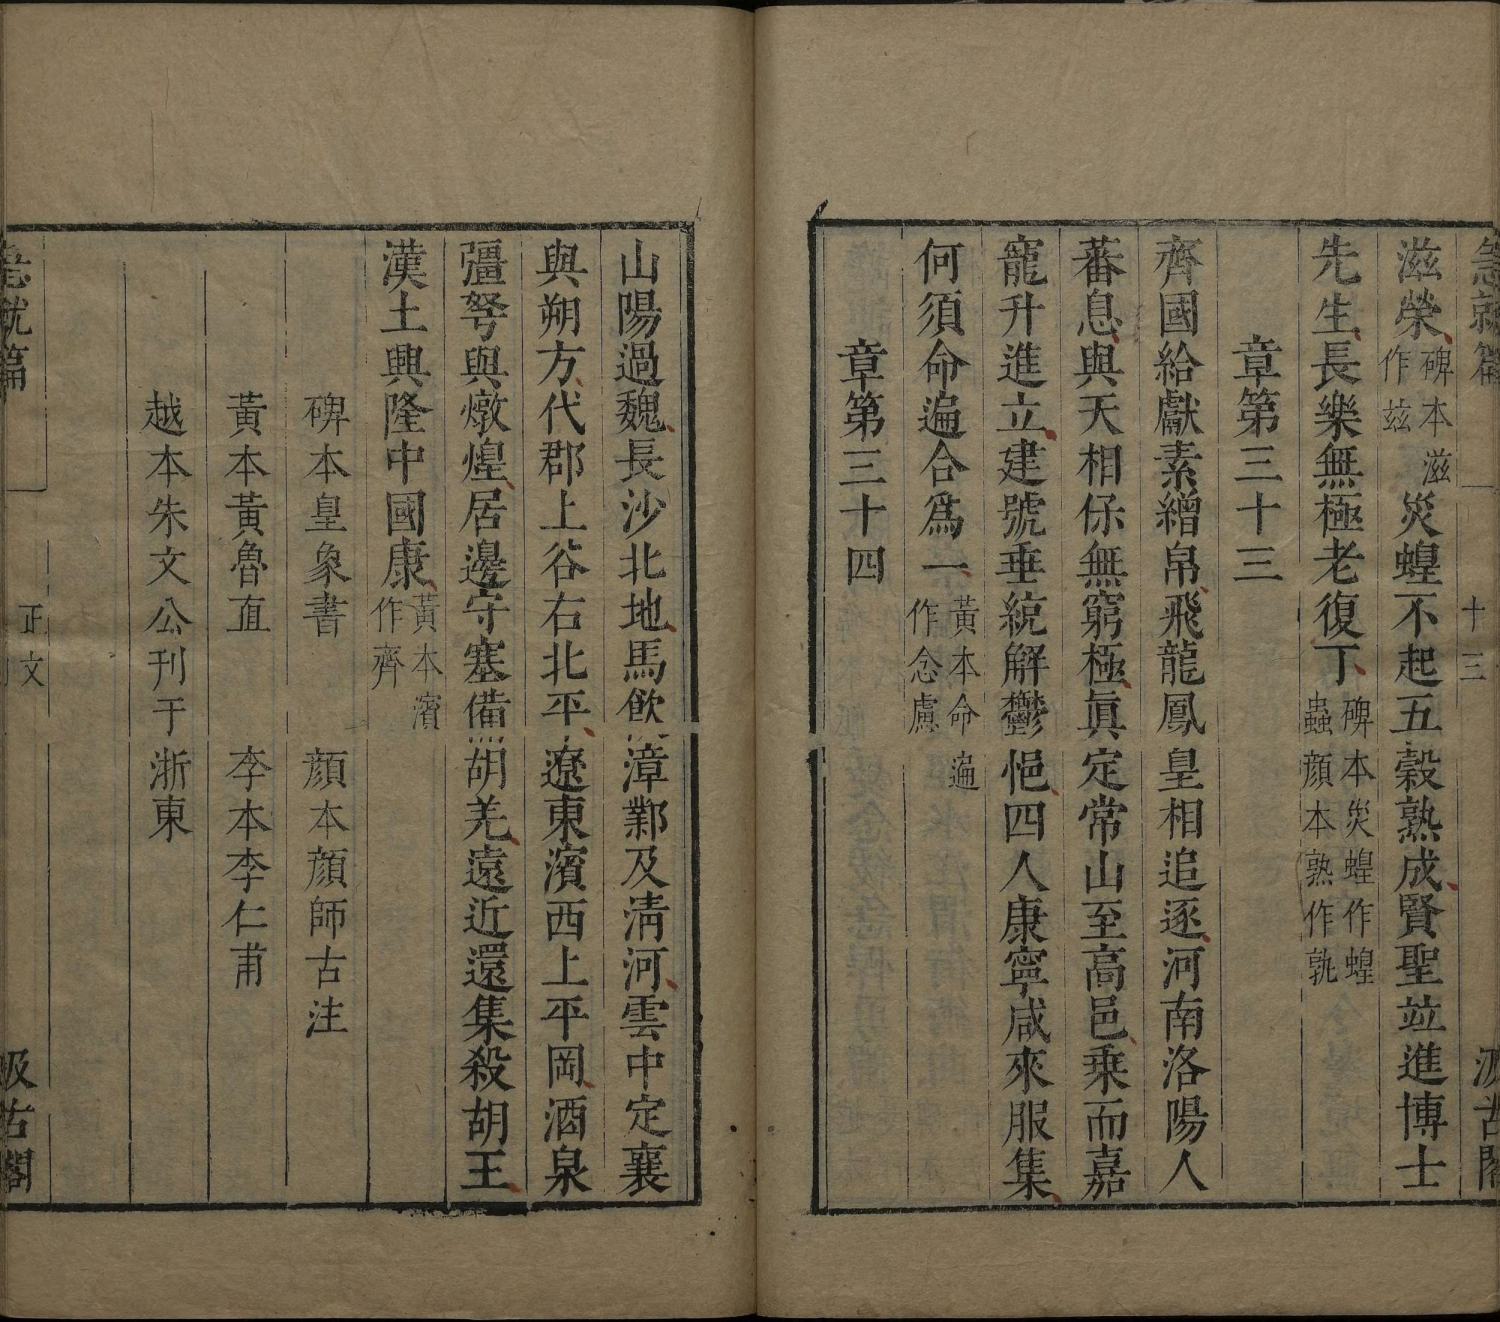 急就篇 十三 汲古閣
滋榮碑本滋作玆災蝗不起五穀熟成賢聖竝進博士
先生長樂無極老復丁碑本災蝗作蝗蟲顔本熟作孰
章第三十三
齊國給獻素繒帛飛龍鳳皇相追逐河南洛陽人
蕃息與天相保無窮極眞定常山至高邑乗而嘉
寵升進立建號垂統解鬱悒四人康寧咸來服集
何須命遍合爲一黃本命遍作念慮
章第三十四
山陽過魏長沙北地馬飲漳鄴及淸河雲中定襄
與朔方代郡上谷右北平遼東濱西上平岡酒泉
彊弩與燉煌居邊守塞備胡羌遠近還集殺胡王
漢土興隆中國康黃本濱作齊
碑本皇象書 顔本顔師古注
黃本黃魯直 李本李仁甫
越本朱文公刊于浙東
急就篇 正文 汲古閣